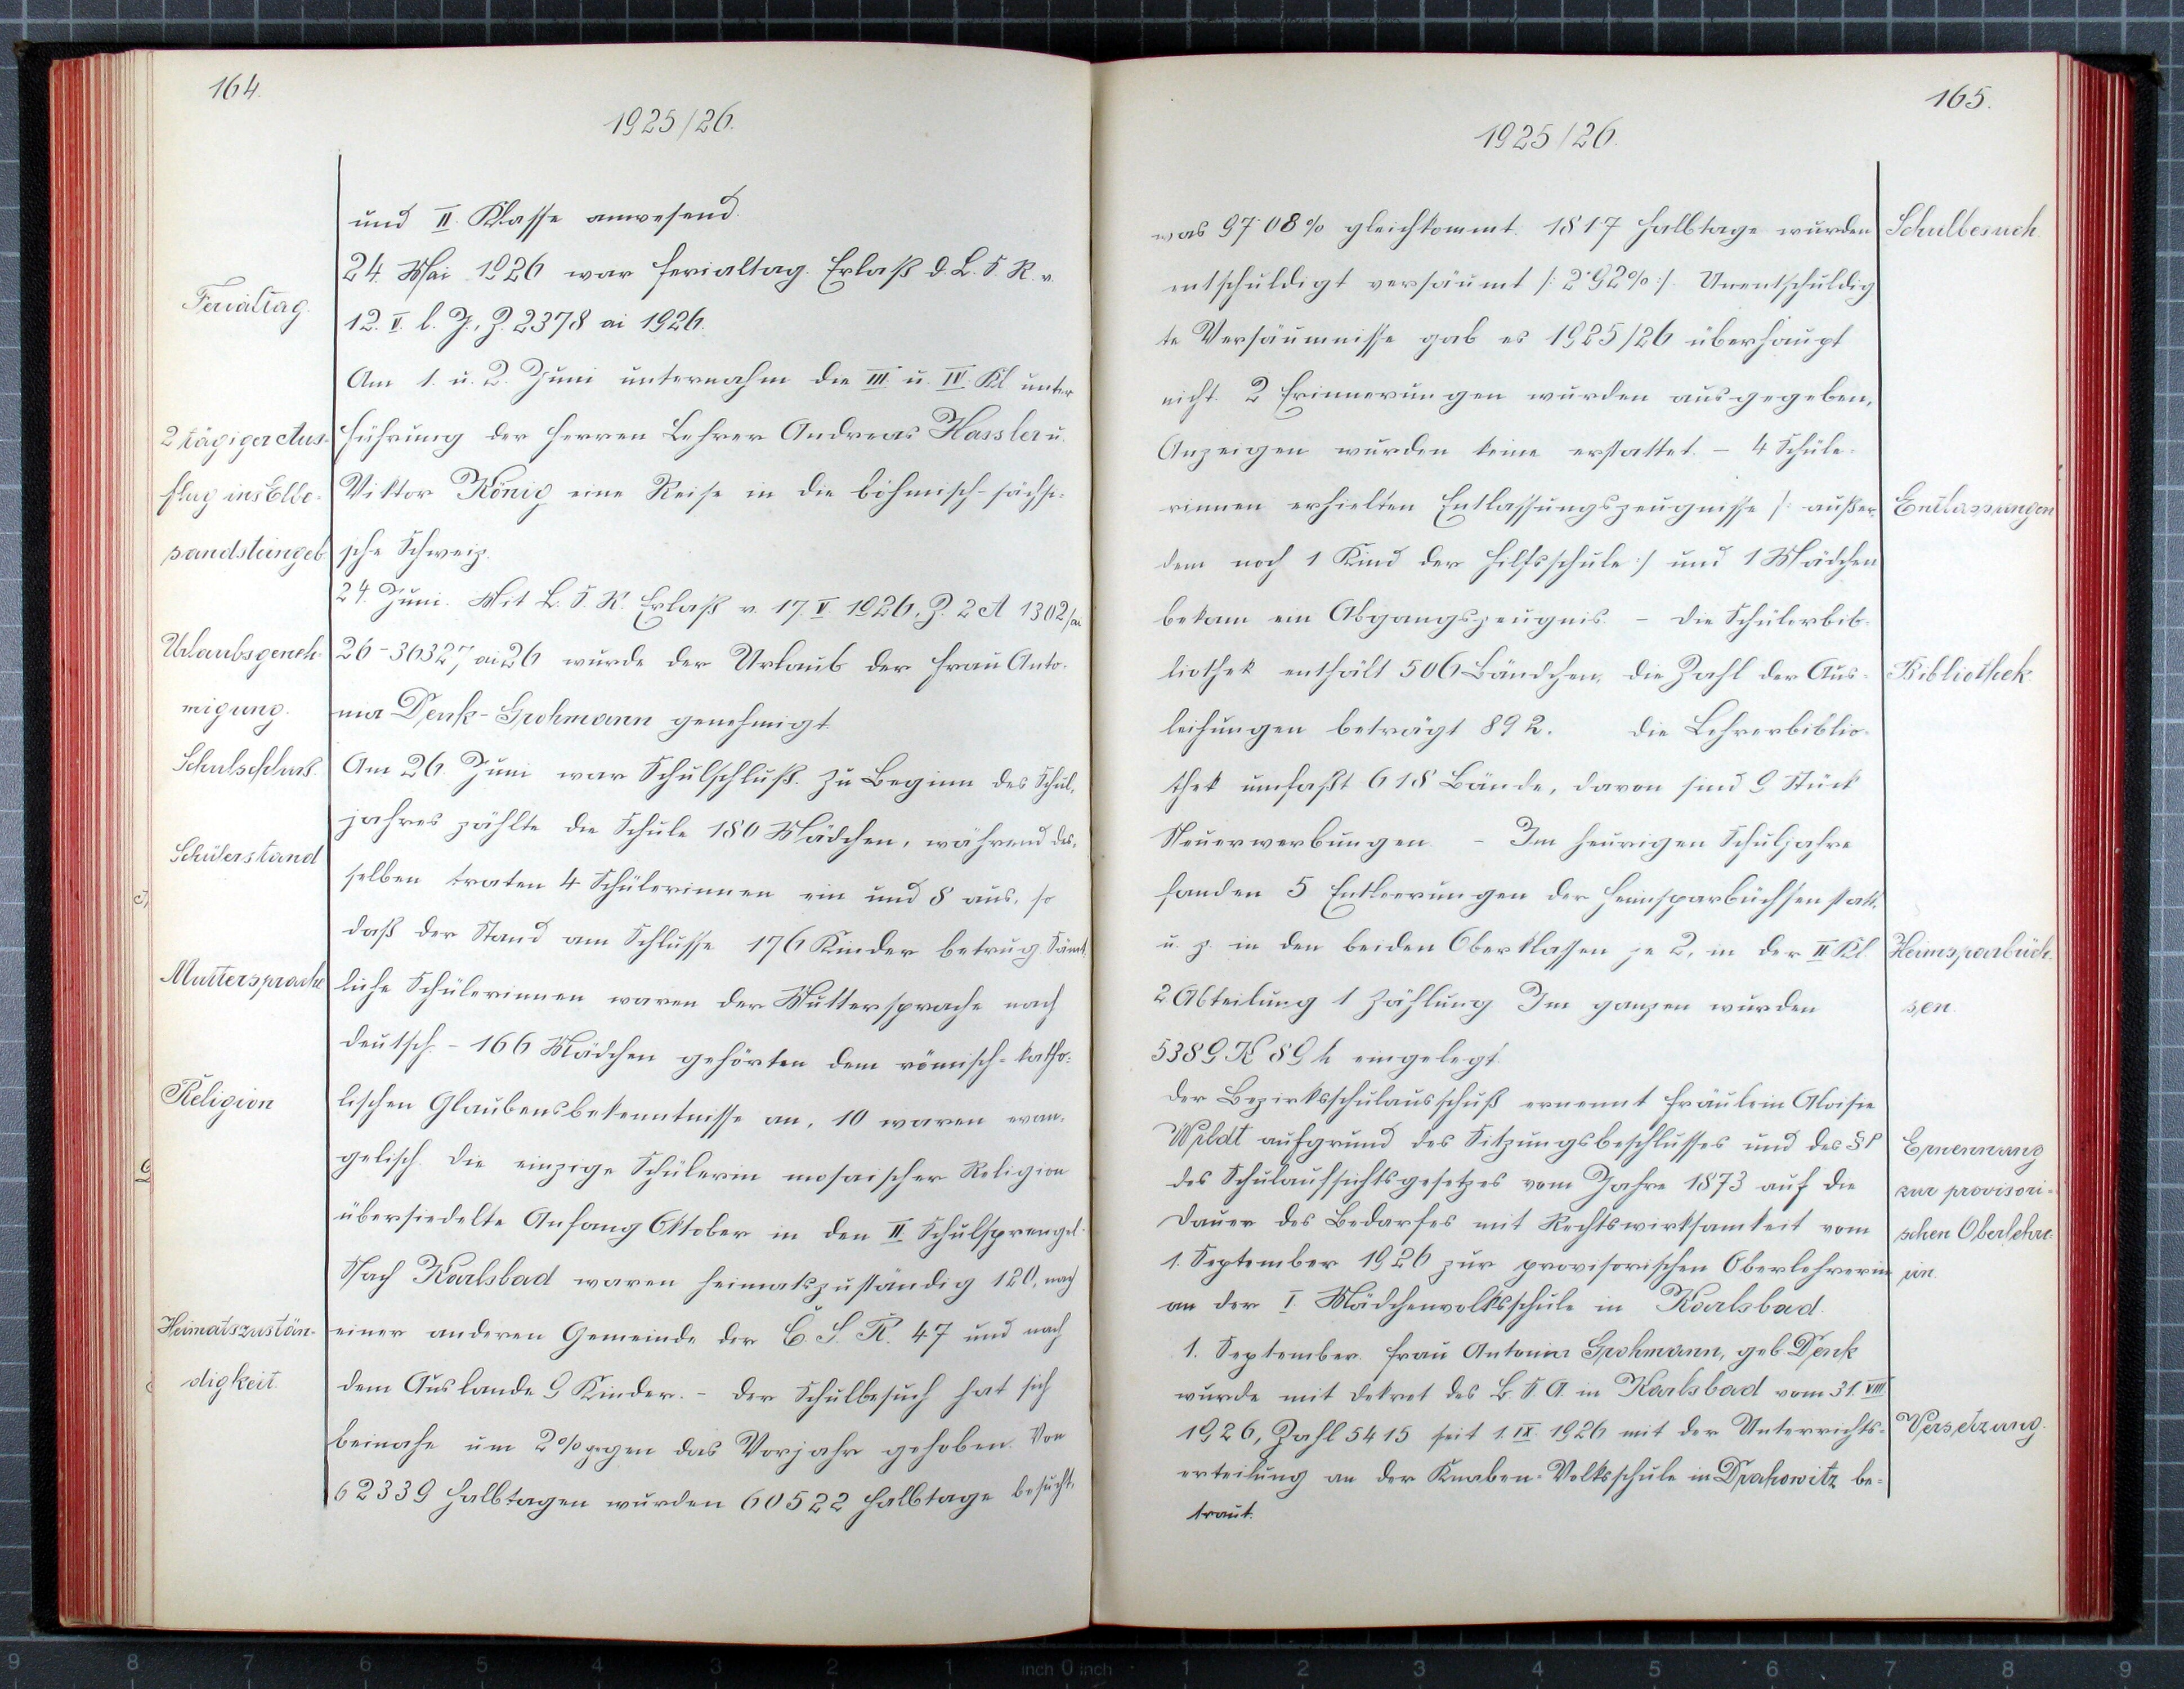 164.
1925/26.
und II. Klasse anwesend.
Ferialtag.
24. Mai 1926 war Ferialtag. Erlaß d. L. S. R. v.
12. V. l. J., Z. 2378 ai 1926.
Am 1. u. 2. Juni unternahm die III. u. IV. Kl unter
2 tägiger Aus-
flug ins Elbe-
sandsteingeb.
Führung der Herren Lehrer Andreas Hassler u.
Viktor König eine Reise in die böhmisch-sächsi-
sche Schweiz.
24. Juni. Mit L. S. R. Erlaß v. 17. V. 1926, Z. 2 A 1302/ai
Urlaubsgeneh-
migung.
26-36327 ai 26 wurde der Urlaub der Frau Anto-
nia Denk-Grohmann genehmigt.
Schulschluß.
Am 26. Juni war Schulschluß. Zu Beginn des Schul-
jahres zählte die Schule 180 Mädchen, während des-
Schülerstand
selben traten 4 Schülerinnen ein und 8 aus, so
daß der Stand am Schlusse 176 Kinder betrug. Sämt-
Muttersprache
liche Schülerinnen waren der Muttersprache nach
deutsch. - 166 Mädchen gehörten dem römisch-katho-
Religion
lischen Glaubensbekenntnisse an, 10 waren evan-
gelisch. Die einzige Schülerin mosaischer Religion
übersiedelte Anfang Oktober in den II. Schulsprengel.
Nach Karlsbad waren heimatszuständig 120, nach
Heimatszustän-
digkeit.
einer anderen Gemeinde der Č. S. R. 47 und nach
dem Auslande 9 Kinder. - Der Schulbesuch hat sich
beinahe um 2% gegen das Vorjahr gehoben. Von
62339 Halbtagen wurden 60522 Halbtage besucht,
165.
1925/26.
was 97·08% gleichkommt. 1817 Halbtage wurden
Schulbesuch.
entschuldigt versäumt /: 2·92% :/. Unentschuldig
te Versäumnisse gab es 1925/26 überhaupt
nicht. 2 Erinnerungen wurden ausgegeben,
Anzeigen wurden keine erstattet. - 4 Schüle-
rinnen erhielten Entlassungszeugnisse /: außer-
Entlassungen
dem noch 1 Kind der Hilfsschule :/ und 1 Mädchen
bekam ein Abgangszeugnis. - Die Schülerbib-
liothek enthält 506 Bändchen, die Zahl der Aus-
Bibliothek.
leihungen beträgt 892. Die Lehrerbiblio-
thek umfaßt 618 Bände, davon sind 9 Stück
Neuerwerbungen. - Im heurigen Schuljahre
fanden 5 Entleerungen der Heimsparbüchsen statt,
u. z. in den beiden Oberklassen je 2, in der II Kl.
Heimsparbüch-
sen.
2 Abteilung 1 Zählung. Im ganzen wurden
5389 K 89 h eingelegt.
Der Bezirksschulausschuß ernennt Fräulein Aloisie
Wildt aufgrund des Sitzungsbeschlusses und des §
Ernennung
zur provisori-
schen Oberlehre-
rin.
des Schulaufsichtsgesetzes vom Jahre 1873 auf die
Dauer des Bedarfes mit Rechtswirksamkeit vom
1. September 1926 zur provisorischen Oberlehrerin
an der I. Mädchenvolksschule in Karlsbad.
1. September. Frau Antonia Grohmann, geb. Denk
wurde mit Dekret des B. S. A. in Karlsbad vom 31. VIII
1926, Zahl 5415 seit 1. IX. 1926 mit der Unterrichts-
Versetzung.
erteilung an der Knaben-Volksschule in Drahowitz be-
traut.
9 8 7 6 5 4 3 2 1 inch 0 inch 1 2 3 4 5 6 7 8 9